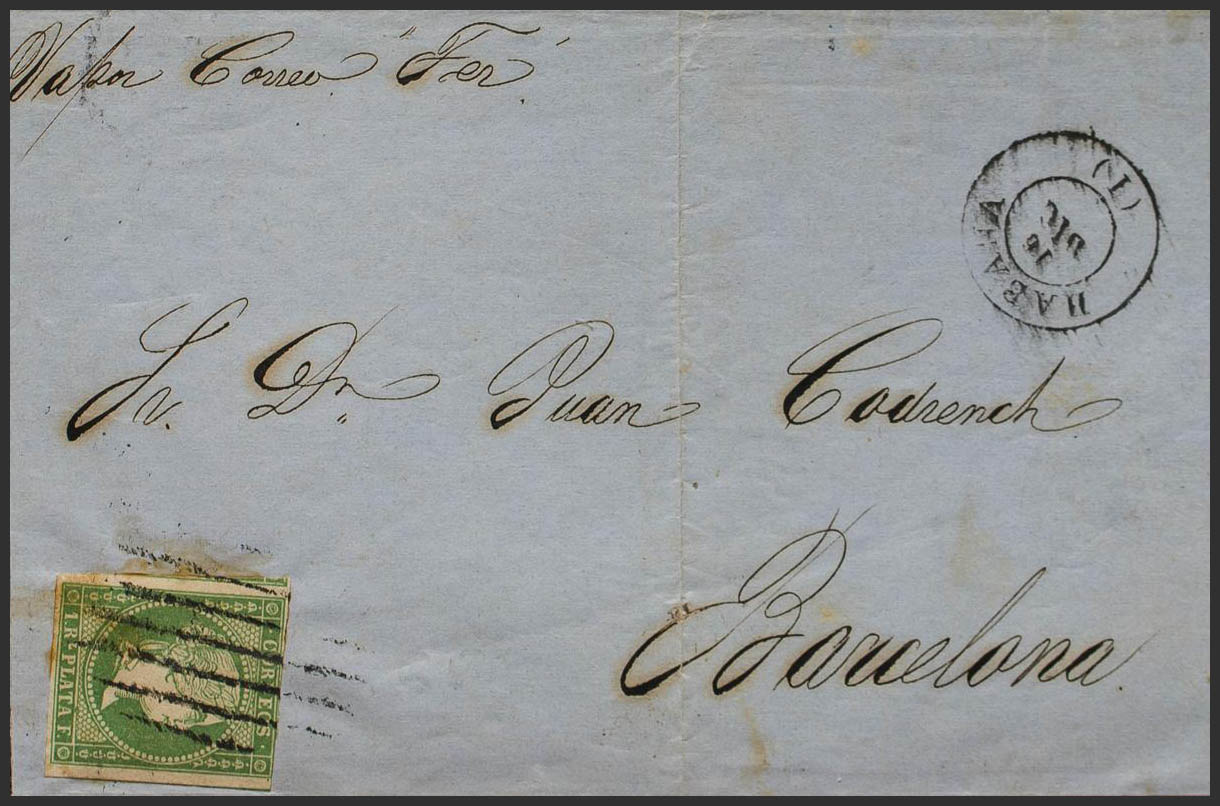 Vapor Correo "Fer"
HABANA (1)
16
DIC
Sr. Dn. Juan Codrench
Barcelona.
CORREOS.
1R. PLATA F.